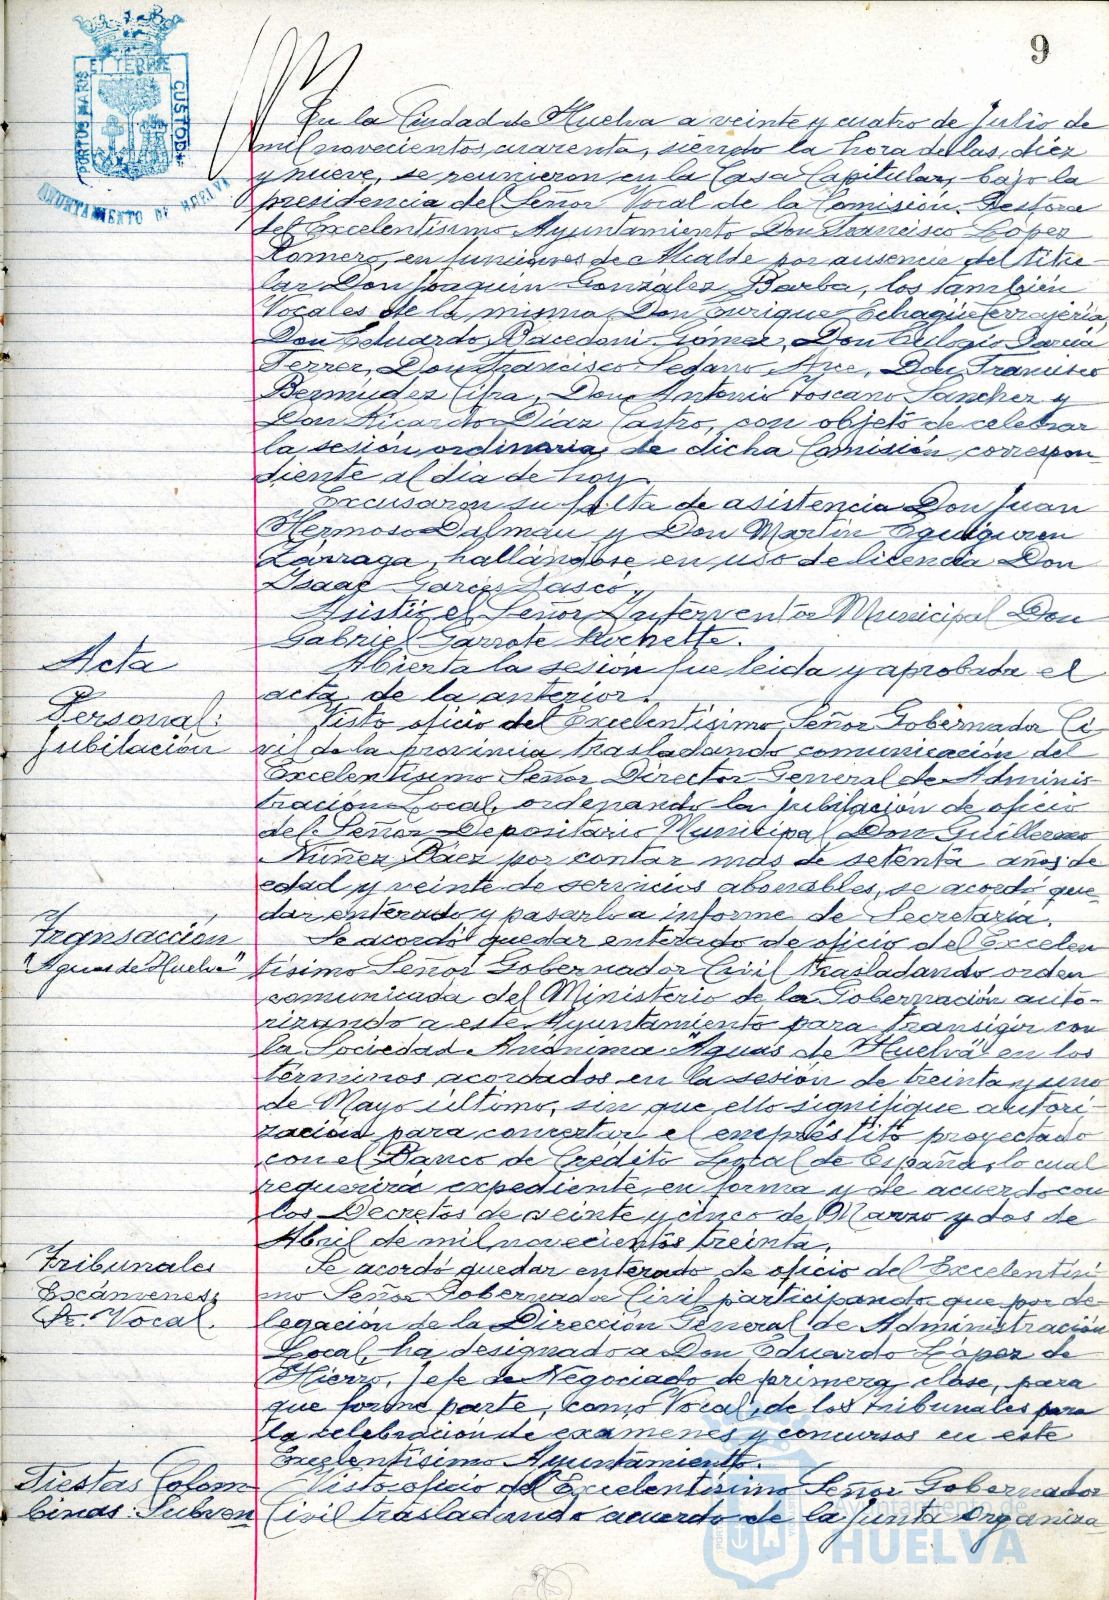 9
PORTUS MARIS
ET TERRE
CUSTODIA
AYUNTAMIENTO DE HUELVA
En la Ciudad de Huelva a veinte y cuatro de Julio de
mil novecientos cuarenta, siendo la hora de las diez
y nueve, se reunieron en la Casa Capitular, bajo la
presidencia del Señor Vocal de la Comisión Gestora
del Excelentísimo Ayuntamiento Don Francisco López
Romero, en funciones de Alcalde por ausencia del titu-
lar Don Joaquín González Barba, los también
Vocales de la misma Don Enrique Echagüe Cerrajería,
Don Eduardo Bacedoni Gómez, Don Eulogio García
Ferrer, Don Francisco Sedano Arce, Don Francisco
Bermúdez Cifra, Don Antonio Toscano Sánchez y
Don Ricardo Díaz Castro, con objeto de celebrar
la sesión ordinaria de dicha Comisión, correspon-
diente al día de hoy.
Excusaron su falta de asistencia Don Juan
Hermoso Dalmau y Don Martín Eguiguren
Zárraga, hallándose en uso de licencia Don
Isaac Garcés Gascó.
Asistió el Señor Interventor Municipal Don
Gabriel Garrote Rochette.
Acta
Abierta la sesión fue leída y aprobada el
acta de la anterior.
Personal:
Jubilación
Visto oficio del Excelentísimo Señor Gobernador Ci-
vil de la provincia trasladando comunicación del
Excelentísimo Señor Director General de Adminis-
tración Local, ordenando la jubilación de oficio
del Señor Depositario Municipal Don Guillermo
Núñez Báez por contar mas de setenta años de
edad y veinte de servicios abonables, se acordó que-
dar enterado y pasarlo a informe de Secretaría.
Transacción
"Aguas de Huelva"
Se acordó quedar enterado de oficio del Excelen
tísimo Señor Gobernador Civil trasladando orden
comunicada del Ministerio de la Gobernación auto-
rizando a este Ayuntamiento para transigir con
la Sociedad Anónima "Aguas de Huelva" en los
términos acordados en la sesión de treinta y uno
de Mayo último, sin que ello signifique autori-
zación para concertar el empréstito proyectado
con el Banco de Crédito Local de España, lo cual
requerirá expediente en forma y de acuerdo con
los Decretos de veinte y cinco de Marzo y dos de
Abril de mil novecientos treinta.
Tribunales
Exámenes;
Sr. Vocal.
Se acordó quedar enterado de oficio del Excelentísi-
mo Señor Gobernador Civil participando que por de-
legación de la Dirección General de Administración
Local, ha designado a Don Eduardo López de
Hierro, Jefe de Negociado de primera clase, para
que forme parte, como Vocal, de los tribunales para
la celebración de examenes y concursos en este
Excelentísimo Ayuntamiento.
Fiestas Colom
binas: Subven
Visto oficio del Excelentísimo Señor Gobernador
Civil trasladando acuerdo de la Junta Organiza
Ayuntamiento de
HUELVA